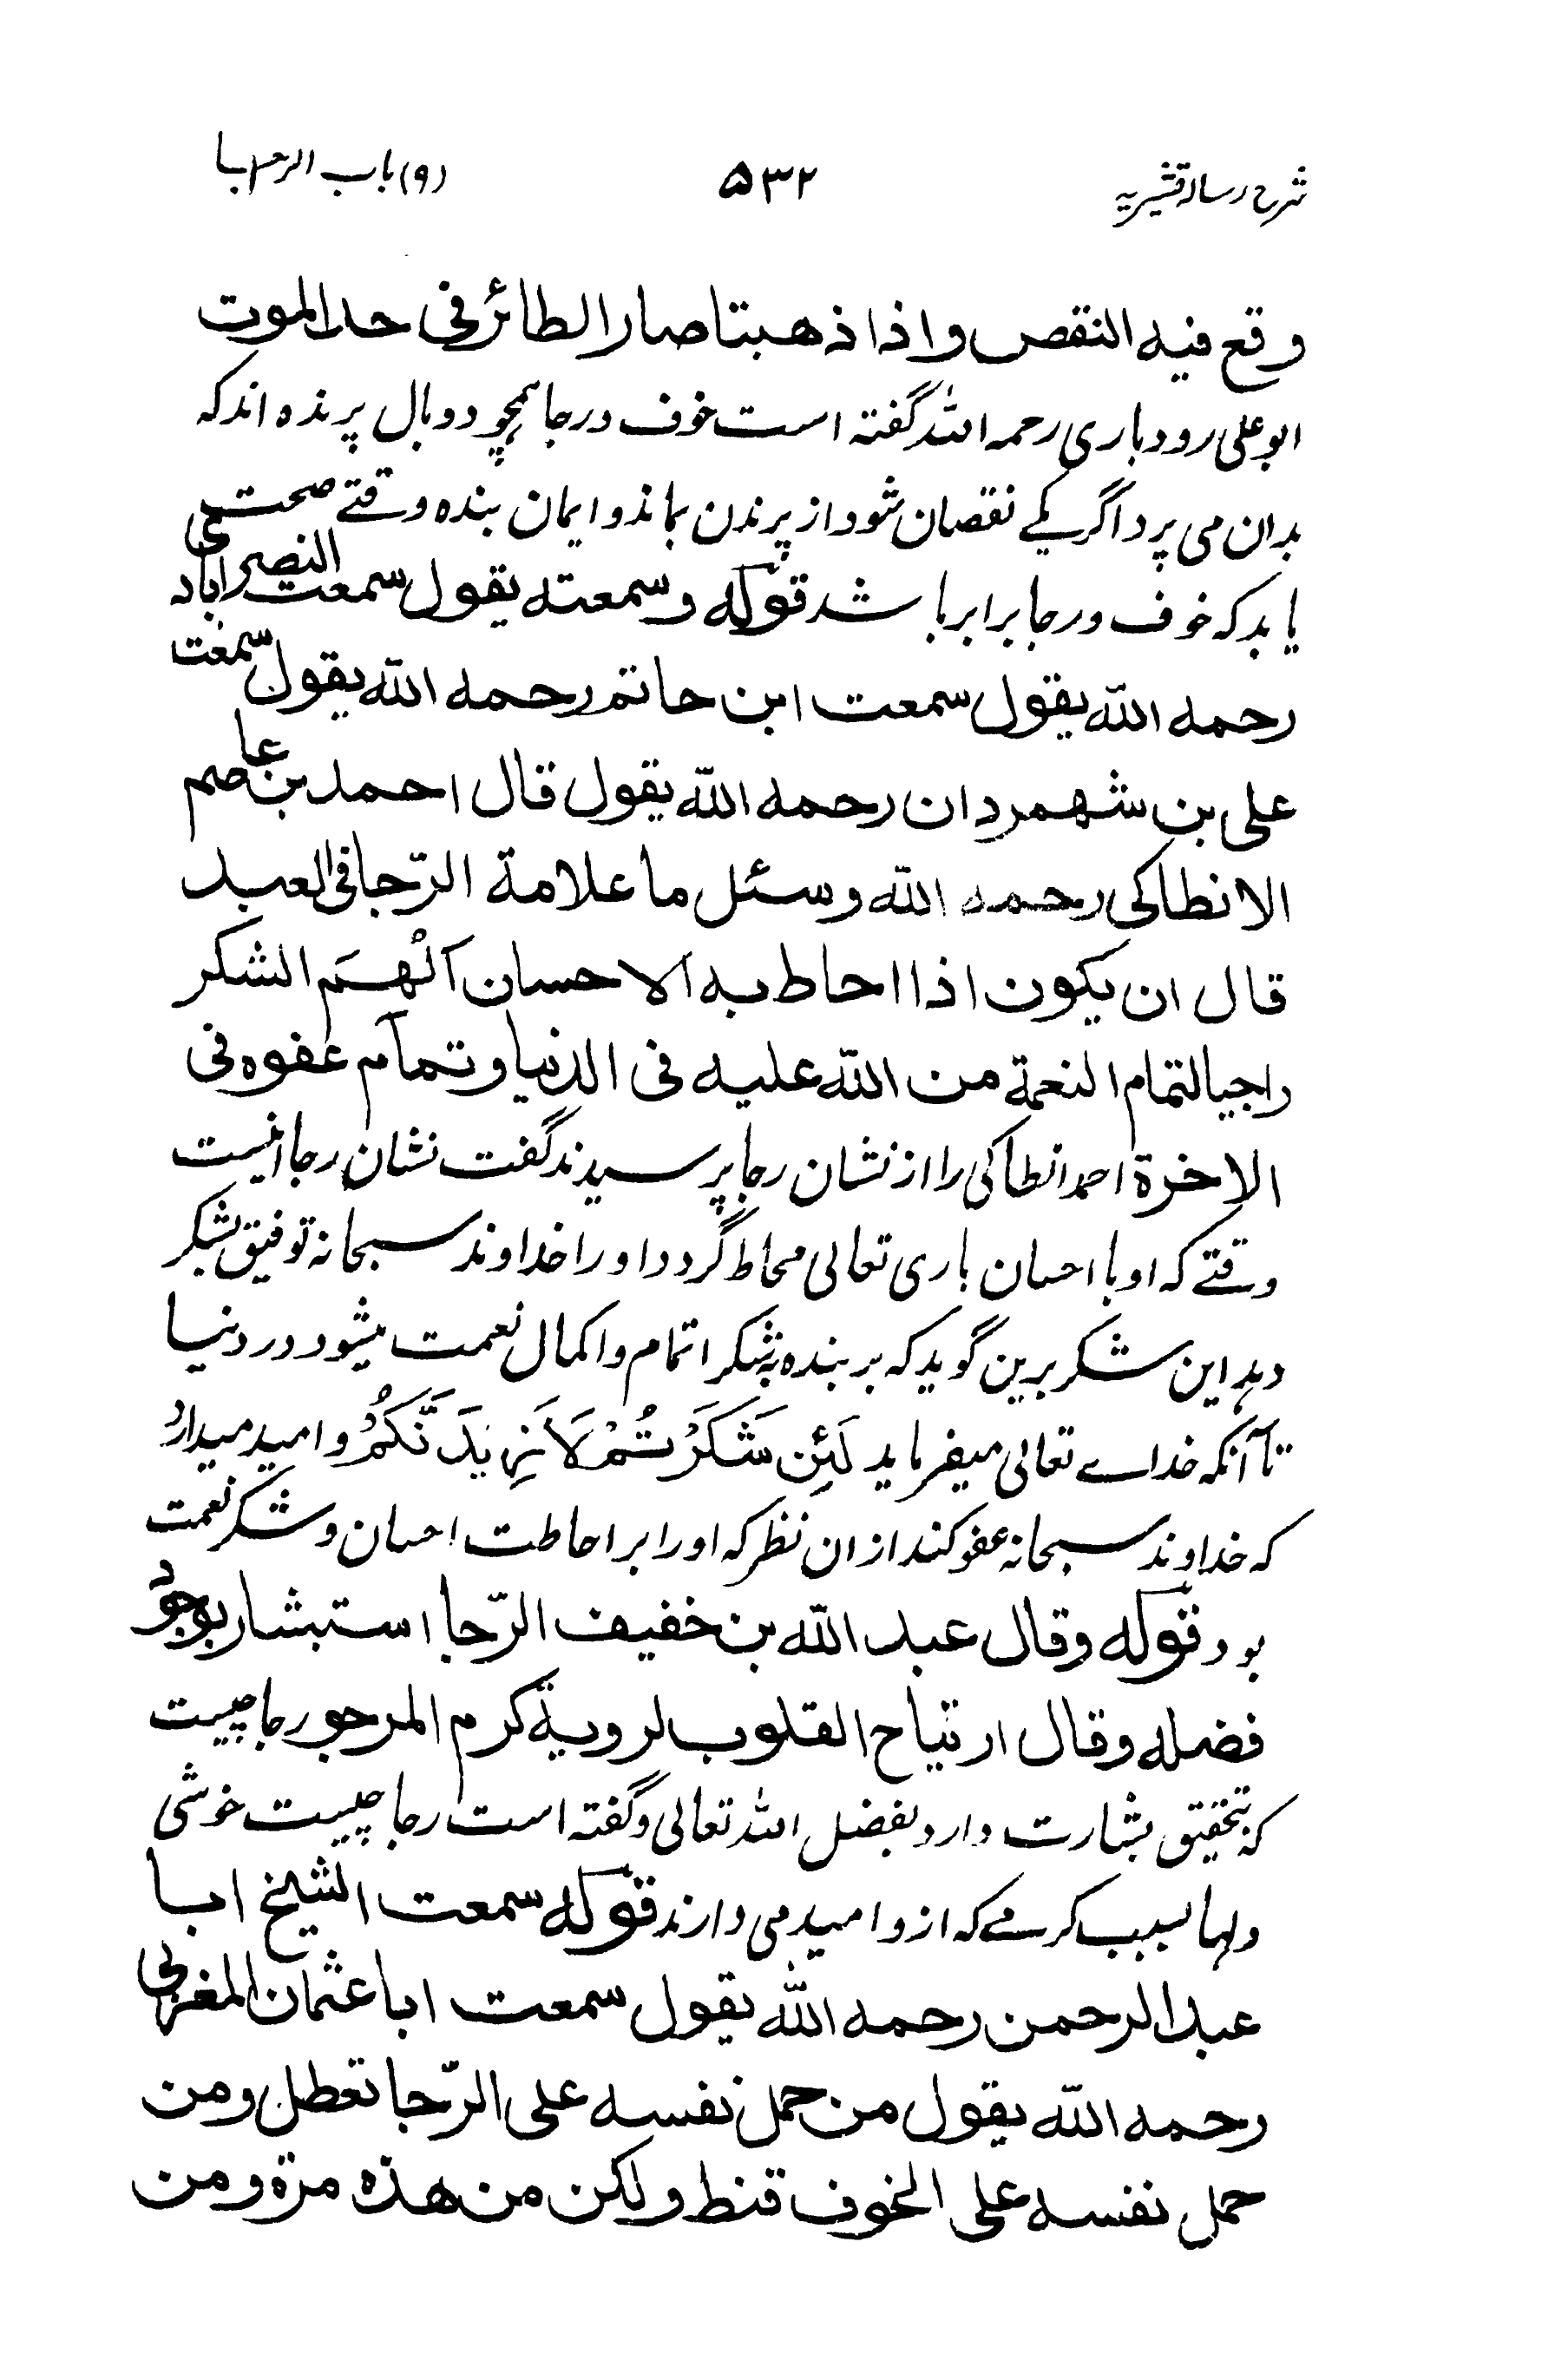 شرح رسالہ قشیریہ ۵۳۲ (۹) باب الرجا
وقع فیه النقص واذا ذهبتا صار الطائر فی حد الموت
ابو علی رودباری رحمه الله گفته است خوف ورجا همچو دو بال پرنده اند که
بدان می پرد اگر یکے نقصان شود از پرندن بماند و ایمان بنده وقتے صحت
یابد که خوف ورجا برابر باشد قوله وسمعته یقول سمعت النصیرابادی
رحمه الله یقول سمعت ابن حاتم رحمه الله یقول سمعت
علی بن شهمردان رحمه الله یقول قال احمد بن عاصم
الانطاکی رحمه الله وسئل ما علامة الرّجا فی العبد
قال ان یکون اذا احاط به الاحسان اَلْهَمَ الشکر
راجیا لتمام النعمة من الله علیه فی الدنیا وتمام عفوه فی
الاخرة احمد انطاکی را از نشان رجا پرسیدند گفت نشان رجا اینست
وقتے که او با احسان باری تعالی محاط گردد او را خداوند سبحانه توفیق شکر
دهد این شکر برین گوید که بر بنده بشکر اتمام و اکمال نعمت میشود در دنیا
تا آنکه خداے تعالی میفرماید لَئِن شَکَرْتُمْ لَاَزِیْدَنَّکُمْ و امید میدارد
که خداوند سبحانه عفو کند ازان نظر که او را بر احاطت احسان و شکر نعمت
بود قوله وقال عبد الله بن خفیف الرّجا استبشار بوجود
فضله وقال ارتیاح القلوب لرویة کرم المرجو رجا چیست
که بتحقیق بشارت دارد بفضل الله تعالی و گفته است رجا چیست خوشی
دلها بسبب کرمے که ازو امید می دارند قوله سمعت الشیخ ابا
عبد الرحمن رحمه الله یقول سمعت ابا عثمان المغربی
رحمه الله یقول من حمل نفسه علی الرّجا تعطل ومن
حمل نفسه علی الخوف قنط ولکن من هذه مرة ومن